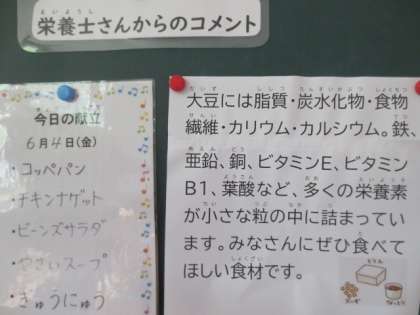 栄養士さんからのコメント
今日の献立
6月4日(金)
・コッペパン
・チキンナゲット
・ビーンズサラダ
・やさいスープ
・ぎゅうにゅう
大豆には脂質・炭水化物・食物
繊維・カリウム・カルシウム。鉄、
亜鉛、銅、ビタミンE、ビタミン
B1、葉酸など、多くの栄養素
が小さな粒の中に詰まってい
ます。みなさんにぜひ食べて
ほしい食材です。